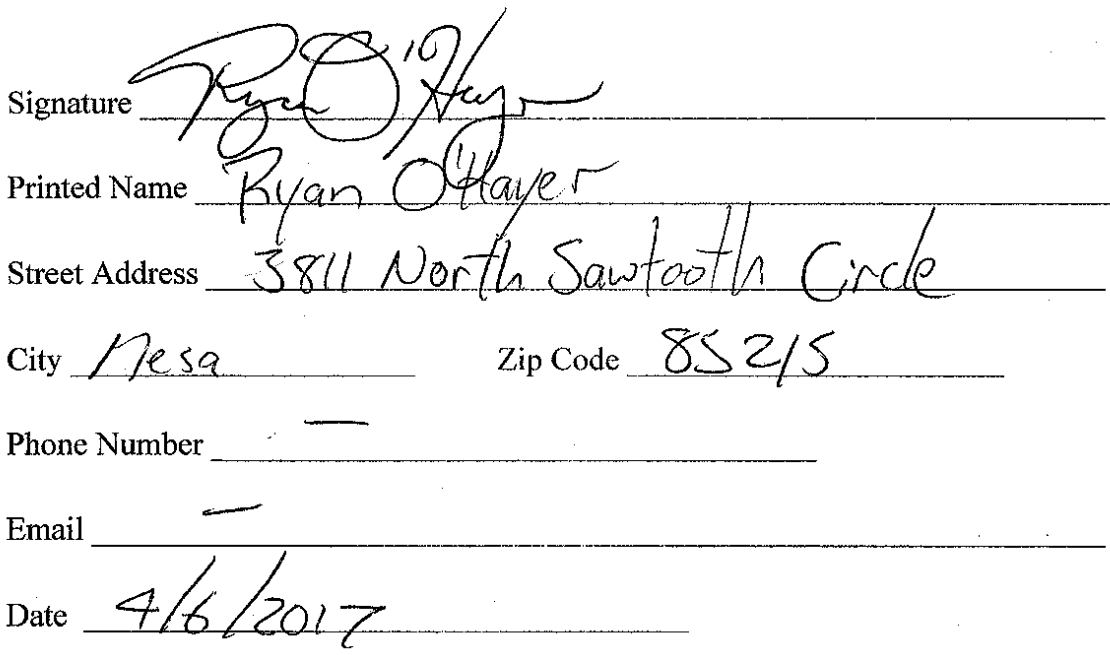 Signature Ryan O'Hayer
Printed Name Ryan O'Hayer
Street Address 3811 North Sawtooth Circle
City Mesa Zip Code 85215
Phone Number —
Email —
Date 4/6/2017